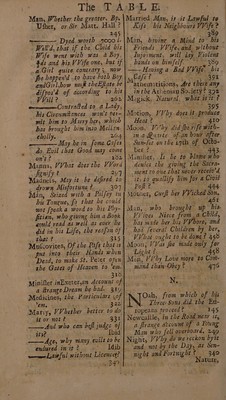 The TABLE.
Man, Whether the greater. By.
Usher, or Sir Matt. Hall ?
245
Dyed worth 2000 l.
Will'd, that if the Child his
Wife went with was a Boy.
and his Wife one, but if
a Girl quite contrary ; now
she happen'd to have both Boy
and Girl, how must the Estate be
dispos'd of according to his
Will ? 262
Contracted to a Lady,
his Circumstances won't per-
mit him to Marry her, which
has brought him into Melan-
choly. 264
May he in some Cases
do Evil that Good may come
on't ? 282
Mumm. What does the Word
signify ? 297
Madness, May it be desired to
drown Misfortunes ? 307
Man, Seized with a Palsey in
his Tongue, so that he could
not speak a word to the Phy-
sician, who giving him a Book,
could read as well as ever he
did in his Life, the reason of
that ? 315
Muscovites, Of the Pass that is
put into their Hands when
Dead, to make St. Peter open
the Gates of Heaven to 'em.
320
Minister in Exeter, an account of
a strange Dream he had. 325
Musicians, the Particulars of
'em. 320
Marry, Whether better to do
it or not ?
And who can best judge of
it ? Ibid
Age, why many evils to be
endured in it ? Ibid
Lawful without Licence ?
Married Man, is it Lawful to
Kiss his Neighbours Wife ?
389
Man, having a Mind to his
Friends Wife, and without
Enjoyment will lay Violent
hands on himself 389
Having a Bad Wife his
Case ? 392
Mathematicians, are there any
in the Athenian Society ? 392
Magick, Natural, what is it ?
395
Motion, Why does it produce
Heat ?
Moon, Why did she rise with-
in a Quarter of an hour of the
Sun-set on the 13th of Octo-
ber ?
Minister, Is he to blame who
denies the giving the Sacra-
ment to one that never receiv'd
it, to qualify him for a Civil
Post ? 484
Mother, Curst her Wicked Son,
461
Man, who brought up his
Wives Niece from a Child,
has made her his Whore, and
had several Children by her,
What ought to be done ? 496
Moon, Was she made only for
Light ? 468
Men, Why Love more to Com-
mand than Obey ? 476
N.
NOah, from which of his
Three Sons did the Eu-
ropeans proceed ? 145
Newcastle, in the Road near it,
a strange account of a Young
Man who fell overboard. 249
Nights, Why do we reckon by it
and not by the Day, as Sen-
night and Fortnight ? 340
Nature,